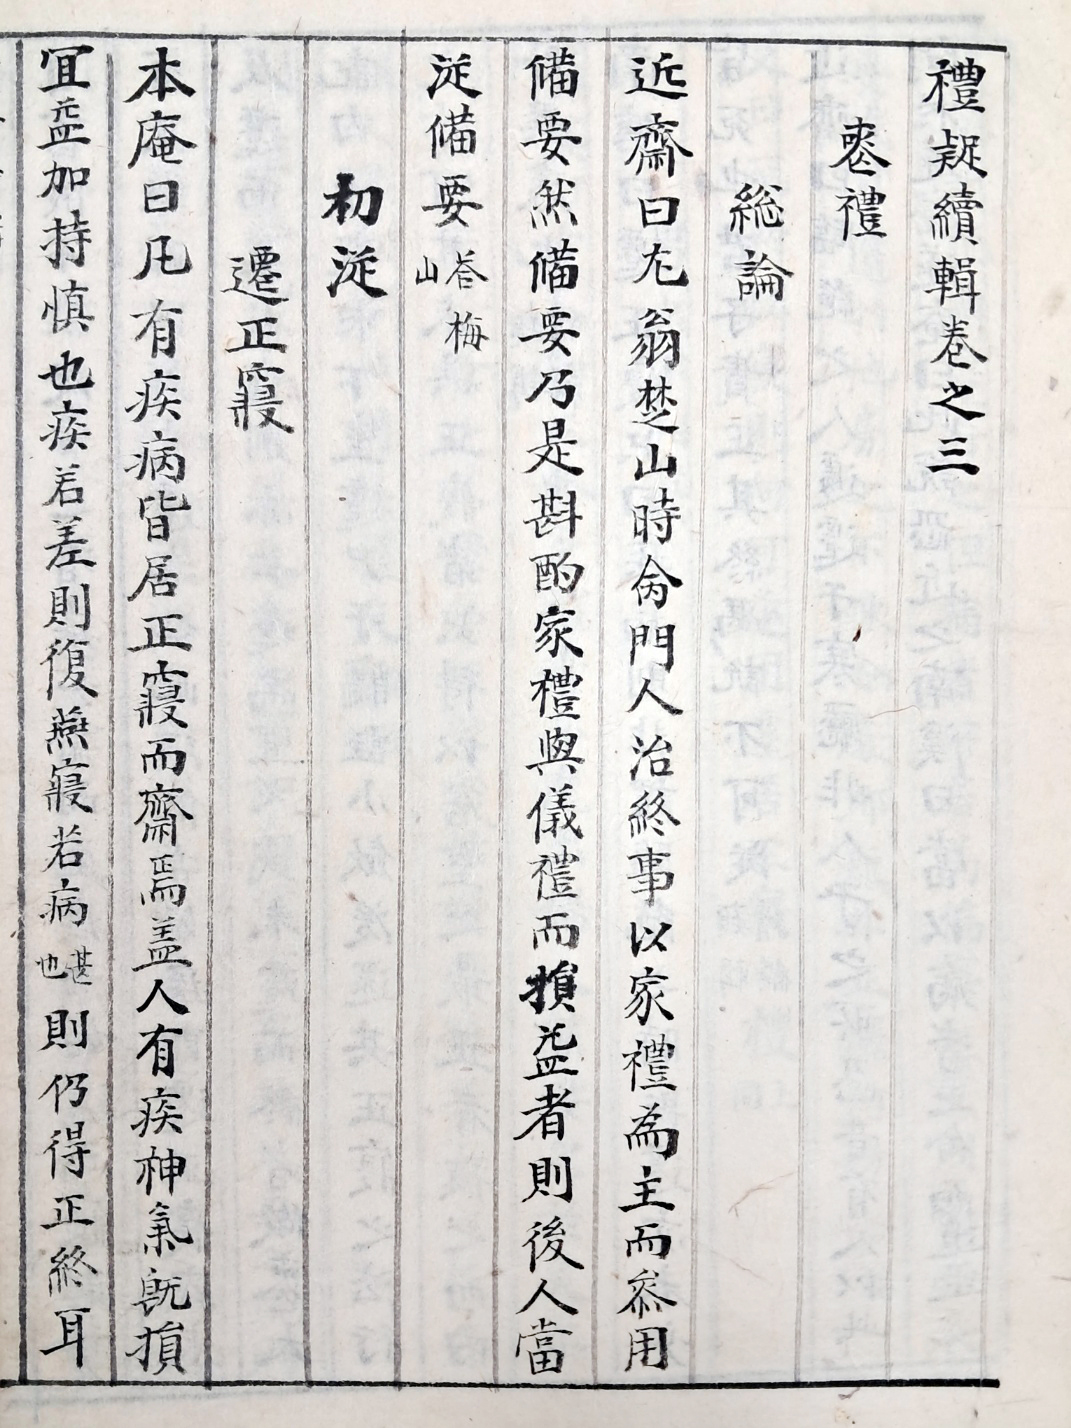 禮疑續輯卷之三
喪禮
総論
近齋曰尤翁楚山時命門人治終事以家禮為主而叅用
備要然備要乃是斟酌家禮與儀禮而損益者則後人當
從備要答梅山
初終
遷正寢
本庵曰凡有疾病皆居正寢而齋焉盖人有疾神氣旣損
宜益加持慎也疾若差則復燕寢若病甚也則仍得正終耳